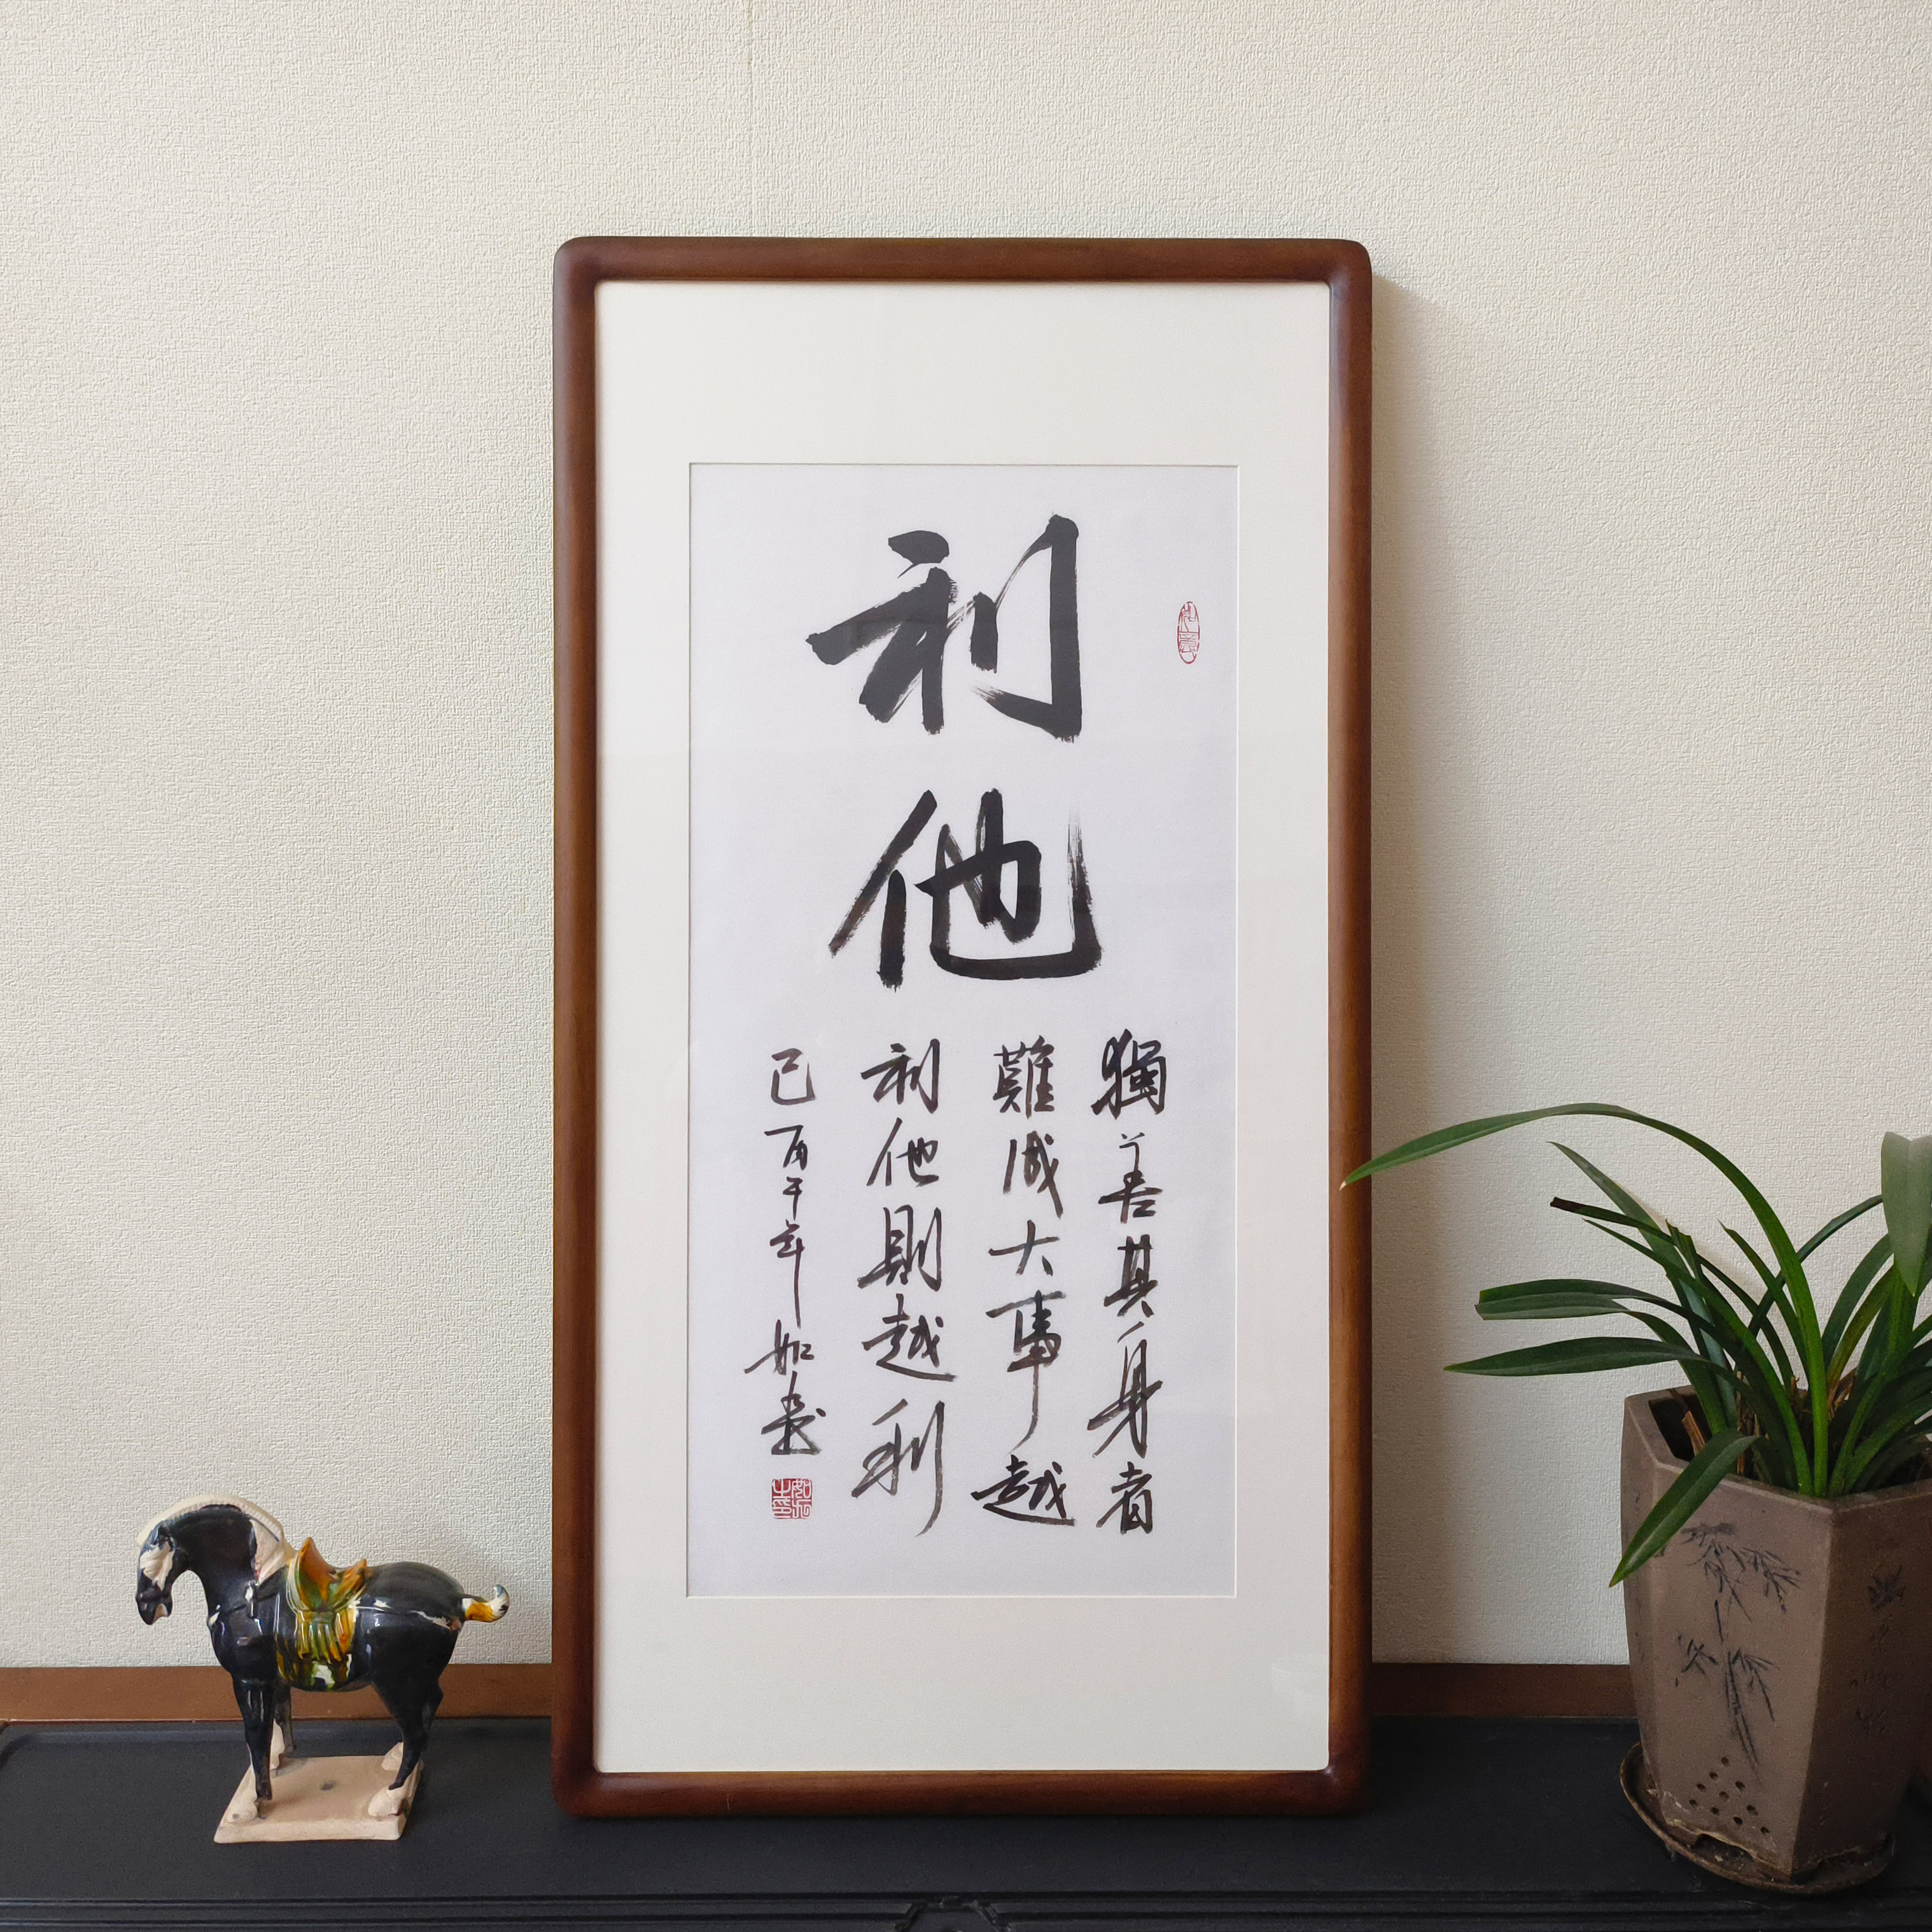 利他
獨善其身者
難成大事越
利他則越利
己丙午年如